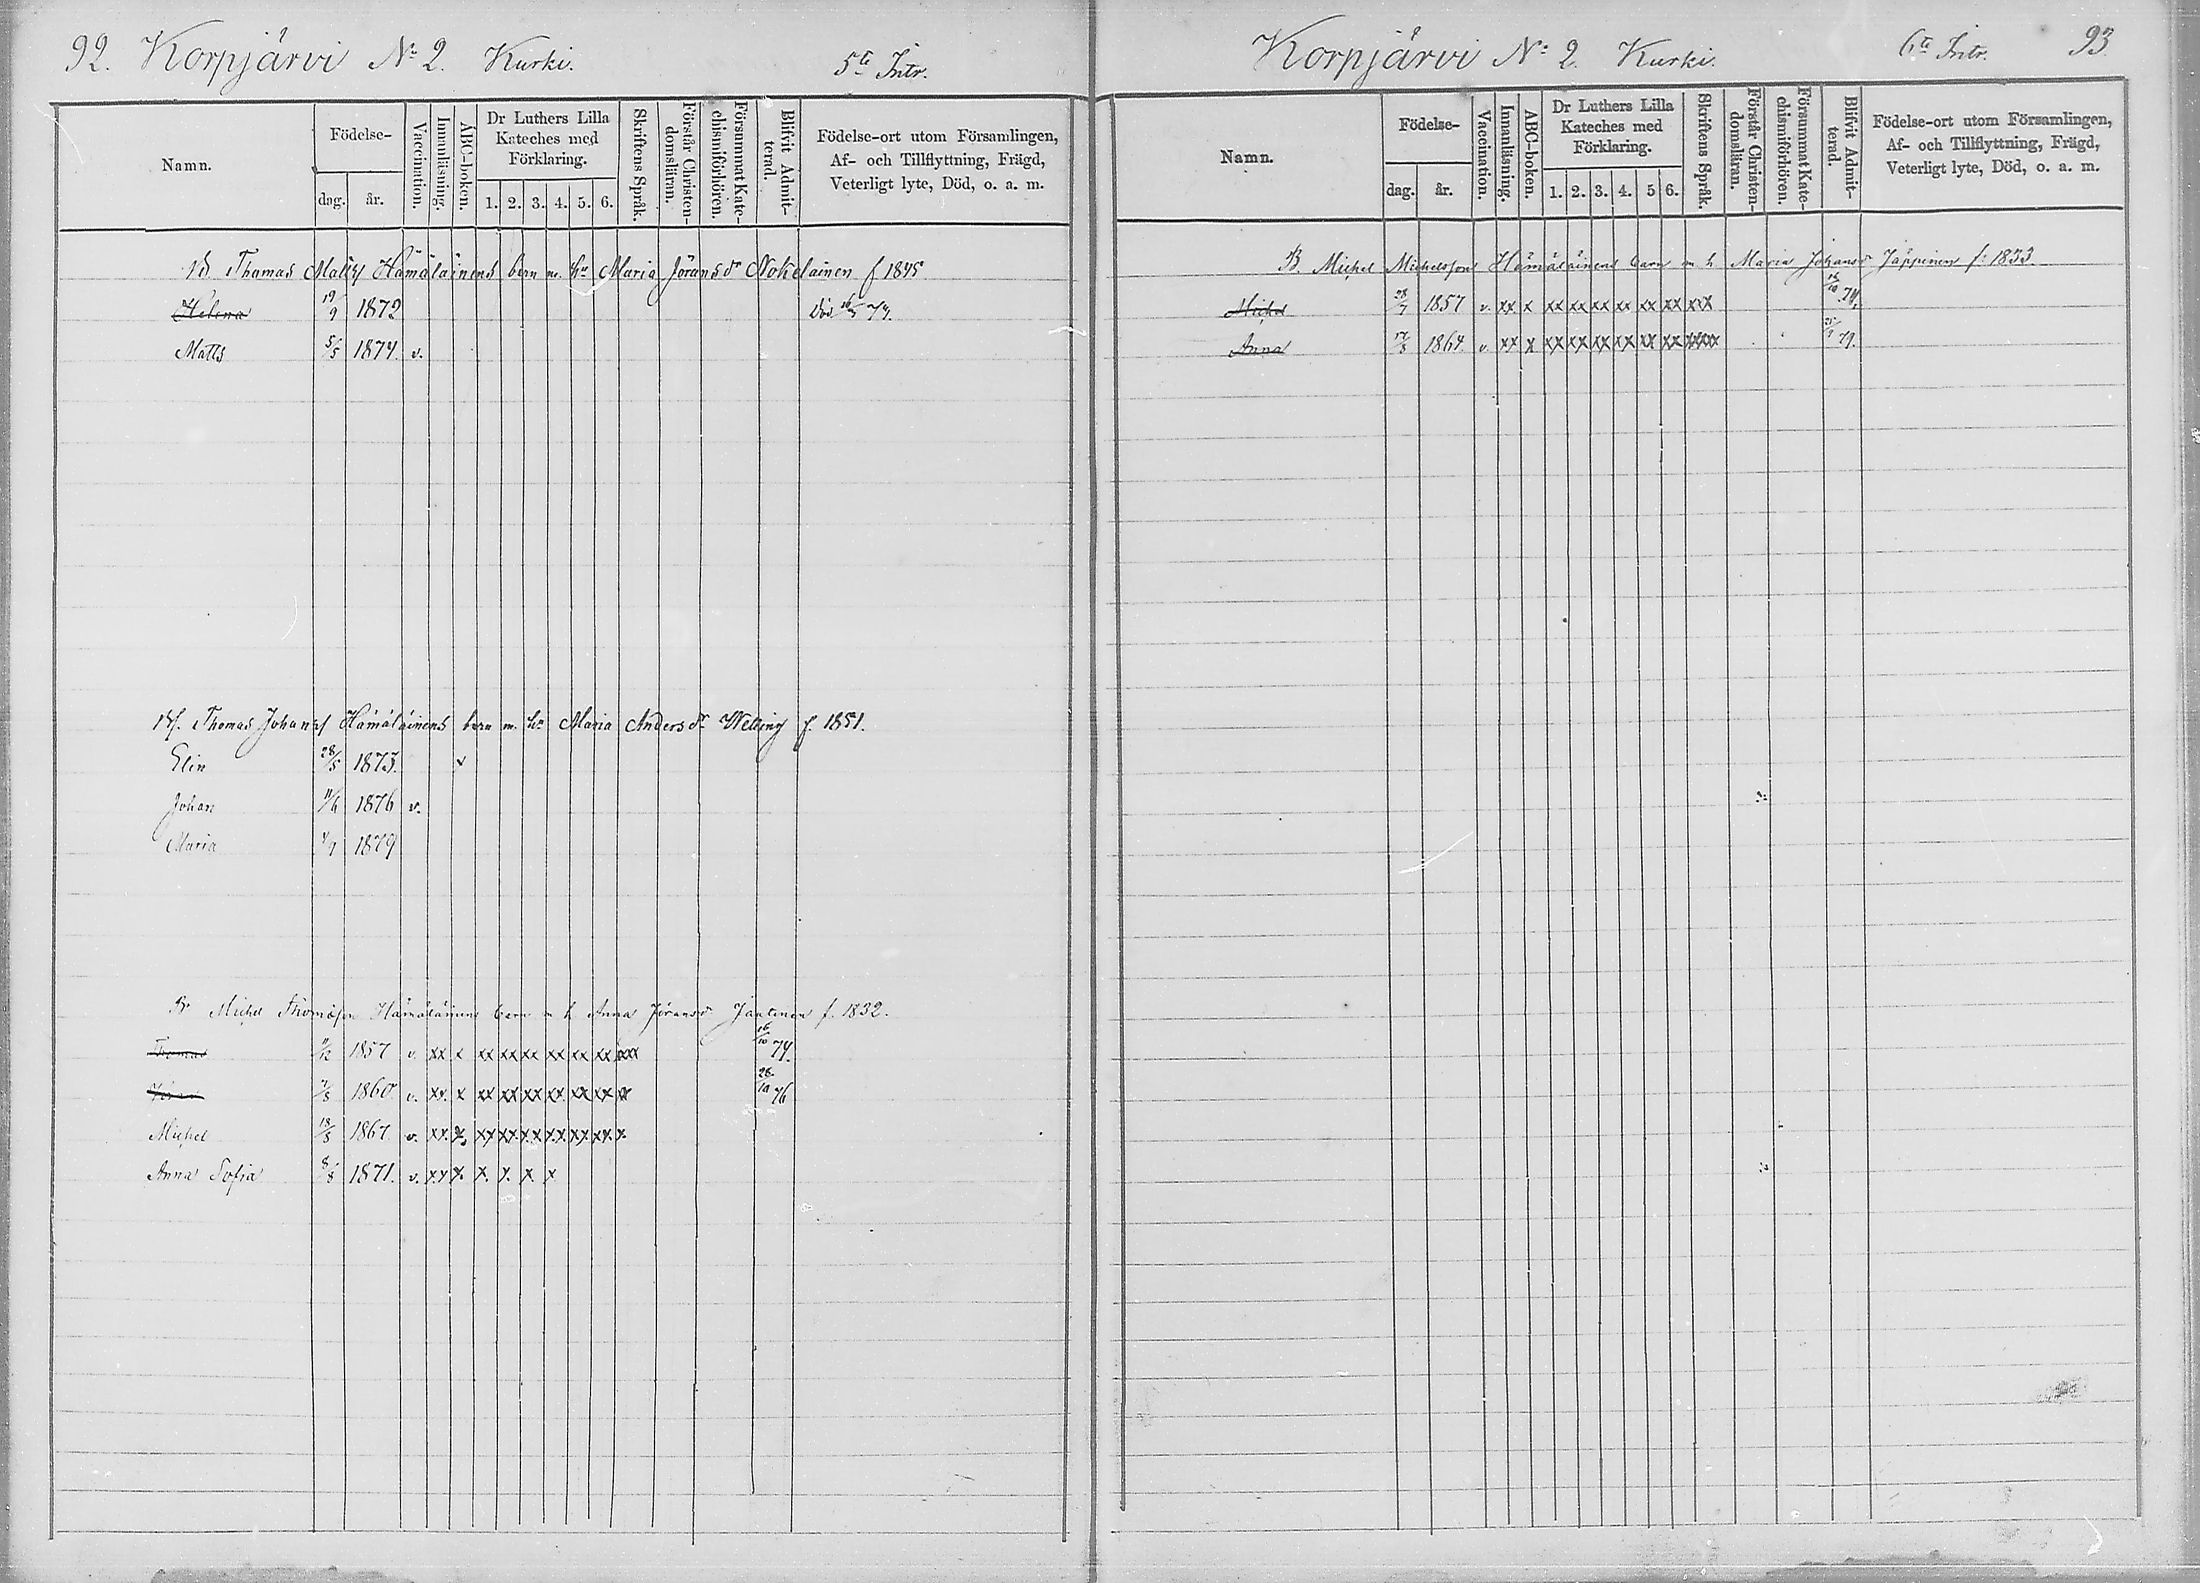 92. Korpjärvi No 2. Kurki. 5te Intr.
Namn. Födelse- dag. år. Vaccination. Innanläsning. ABC-boken. Dr Luthers Lilla Kateches med Förklaring. 1. 2. 3. 4. 5. 6. Skriftens Språk. Förstår Christendomsläran. Försummat Katechismiförhören. Blifvit Admitterad. Födelse-ort utom Församlingen, Af- och Tillflyttning, Frägd, Veterligt lyte, Död, o. a. m.
Thomas Hämäläinens barn m. hu Maria Jöransdr Nokelainen f 1845
Helena 19/9 1872 Död 74.
Matts 5/5 1874. v.
Thomas Johans Hämäläinens barn m. hu Maria Andersdr f. 1851.
Elin 28/5 1873. v
Johan 11/6 1876 v.
Maria 1879
Br Michel Thomasson Hämäläinens barn m h Anna Jöransdr f. 1832.
Thomas 11/12 1857 v. xx x xx xx xx xx xx xx xxx 16/10 74.
1860 v. xx. x xx xx xx xx xx xx xx 28/10 76
Michel 13/8 1867. v. xx. x xx xx xx xx xx xx x.
Anna Sofia 8/8 1871. v. xx x. x. x. x. x
Korpjärvi No 2. Kurki. 6te Intr. 93
Namn. Födelse- dag. år. Vaccination. Innanläsning. ABC-boken. Dr Luthers Lilla Kateches med Förklaring. 1. 2. 3. 4. 5 6. Skriftens Språk. Förstår Christendomsläran. Försummat Katechismiförhören. Blifvit Admitterad. Födelse-ort utom Församlingen, Af- och Tillflyttning, Frägd, Veterligt lyte, Död, o. a. m.
B. Michel Michelsson Hämäläinens barn m h Maria Johansdr Jäppinen f. 1833.
Michel 28/7 1857 v. xx x xx xx xx xx xx xx xxx 16/10 74.
Anna 17/8 1864. v. xx x xx xx xx xx xx xx xxxx 79.